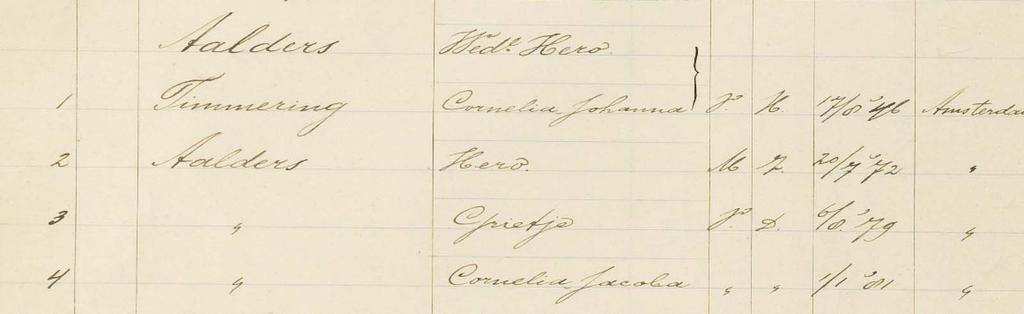 Aalders Wede Hero
1 Timmering Cornelia Johanna V H 17/8 '46 Amsterda
2 Aalders Hero. M Z. 20/7 '72 "
3 " Grietje V. D. 6/8 '79 "
4 " Cornelia Jacoba " " 1/1 '81 "